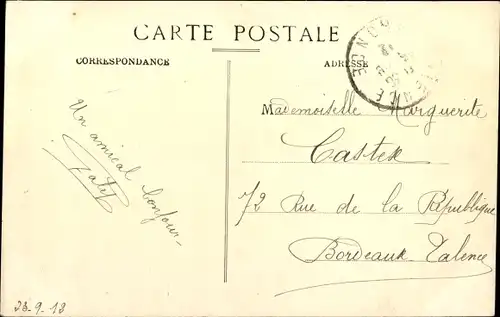 CARTE POSTALE
CORRESPONDANCE
ADRESSE
Mademoiselle Marguerite
Castex
72 Rue de la République
Bordeaux Talence
Un amical bonjour
23-9-13